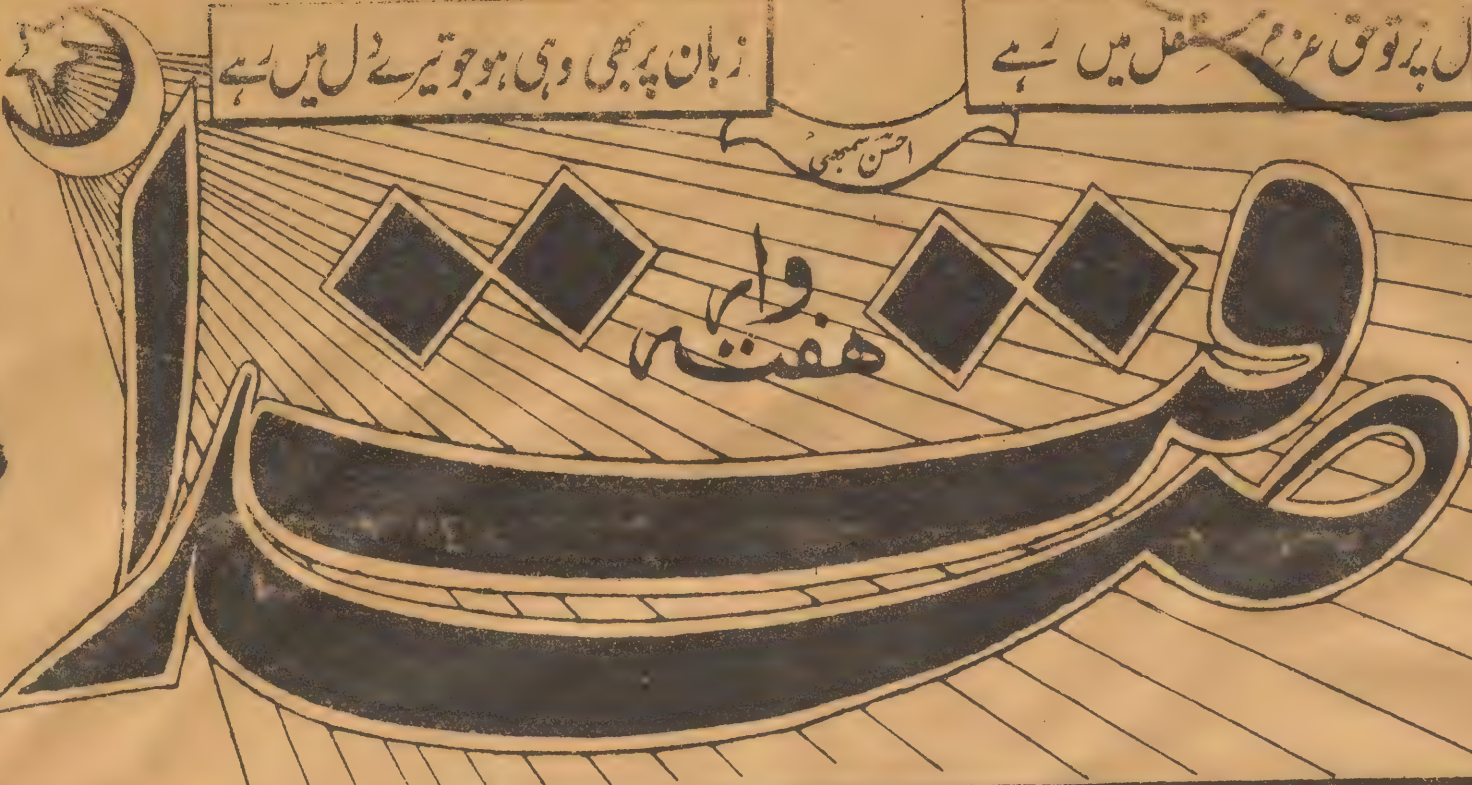 ل پر تو حق عزم مستقل میں رہے
زبان پر بھی وہی ہو جو تیرے دل میں رہے
احسن
ہفتہ وار
صداقت